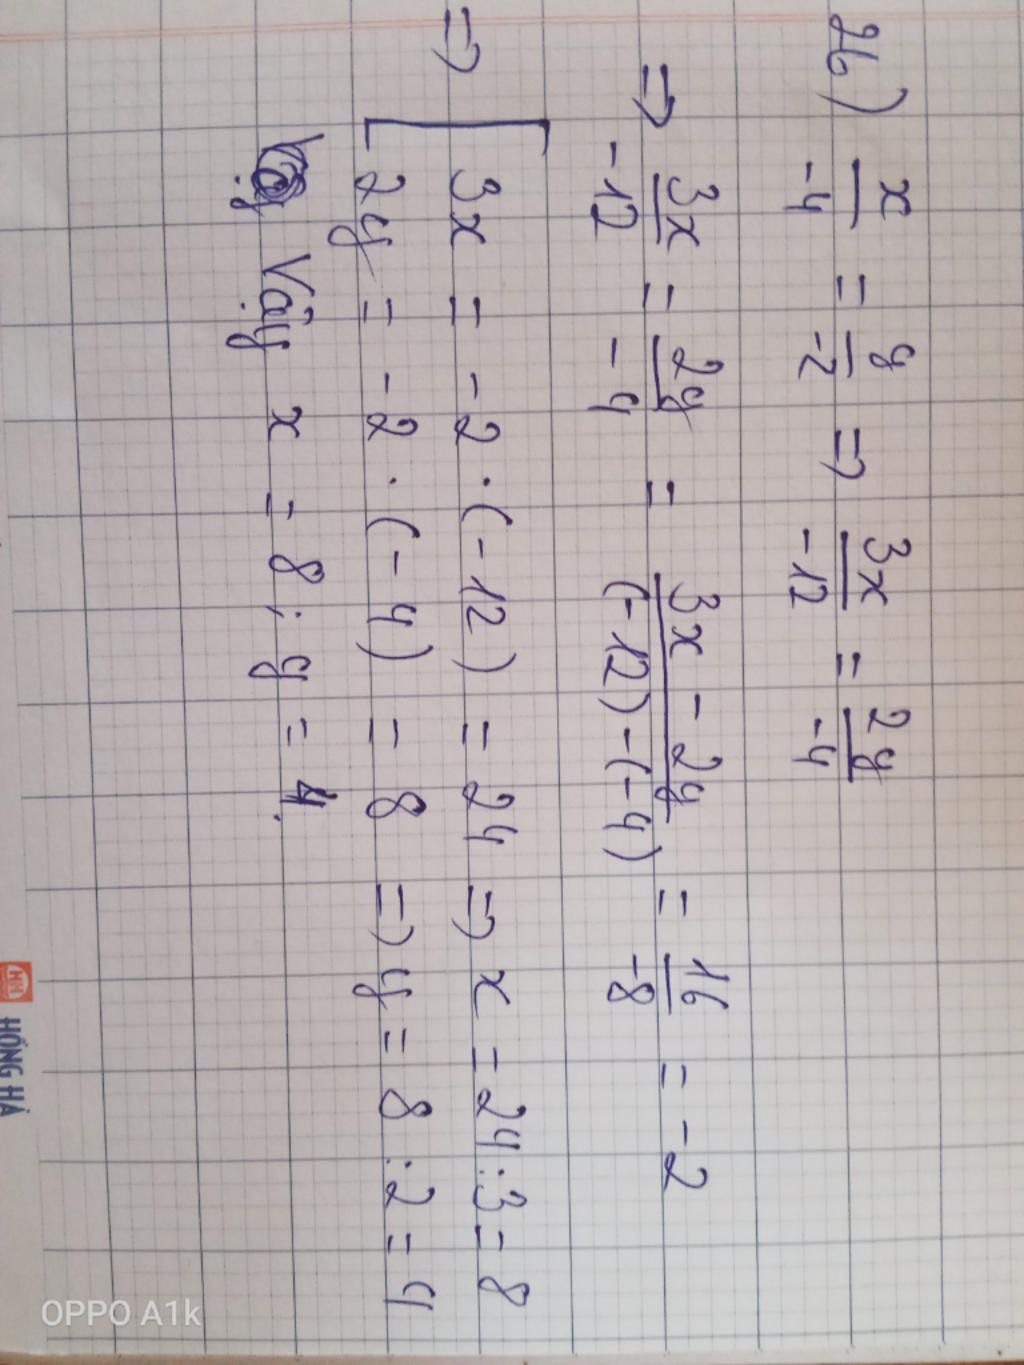 26) x/-4 = y/-2 => 3x/-12 = 2y/-4
=> 3x/-12 = 2y/-4 = 3x - 2y/(-12) - (-4) = 16/-8 = -2
=> [ 3x = -2 . (-12) = 24 => x = 24 : 3 = 8
2y = -2 . (-4) = 8 => y = 8 : 2 = 4
Vậy x = 8 ; y = 4.
HH
HỒNG HÀ
OPPO A1k